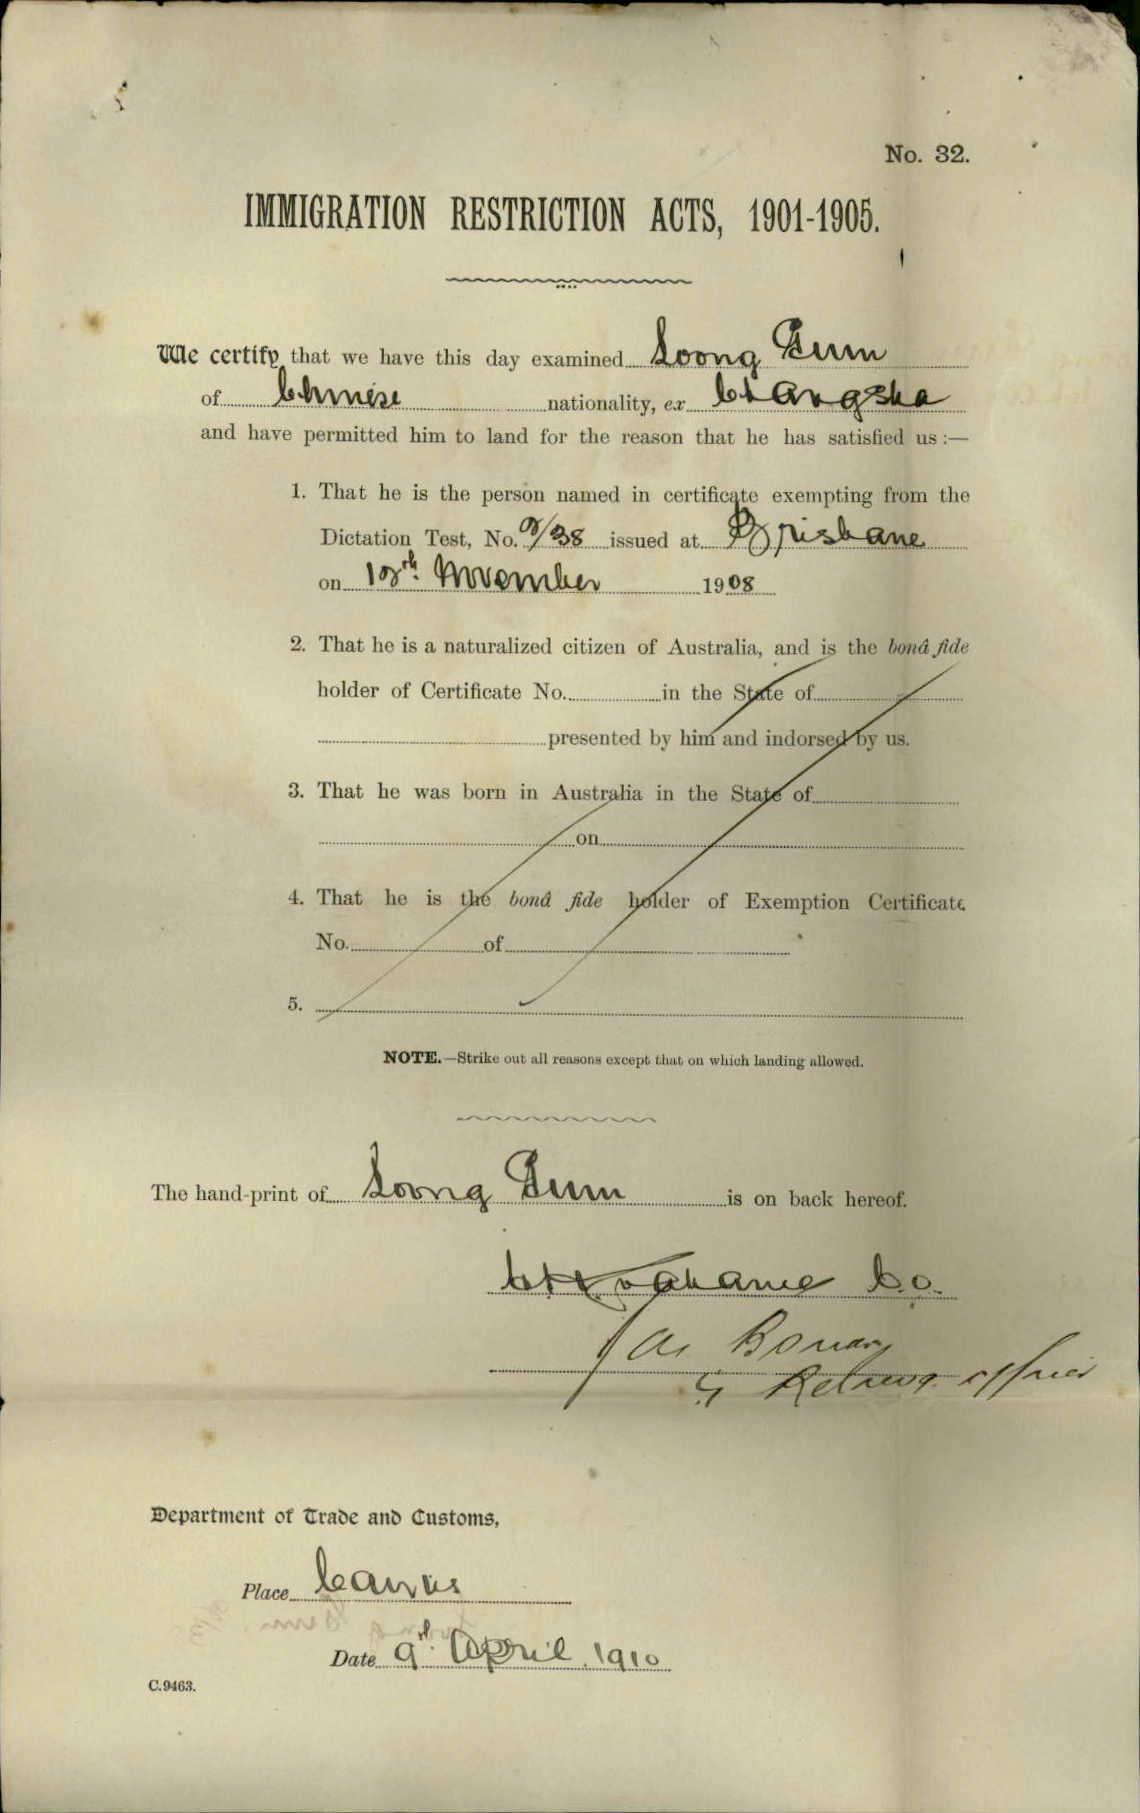 No. 32.
IMMIGRATION RESTRICTION ACTS, 1901-1905.
We certify that we have this day examined Soong Gum
of Chinese nationality, ex Changsha
and have permitted him to land for the reason that he has satisfied us :—
1. That he is the person named in certificate exempting from the
Dictation Test, No. 9/38 issued at Brisbane
on 18th November 1908
2. That he is a naturalized citizen of Australia, and is the bonâ fide
holder of Certificate No. in the State of
presented by him and indorsed by us.
3. That he was born in Australia in the State of
on
4. That he is the bonâ fide holder of Exemption Certificate
No. of
5.
NOTE.—Strike out all reasons except that on which landing allowed.
The hand-print of Soong Gum is on back hereof.
C.O.
officer
Department of Trade and Customs,
Place Cairns
Date 9th April 1910
C.9463.